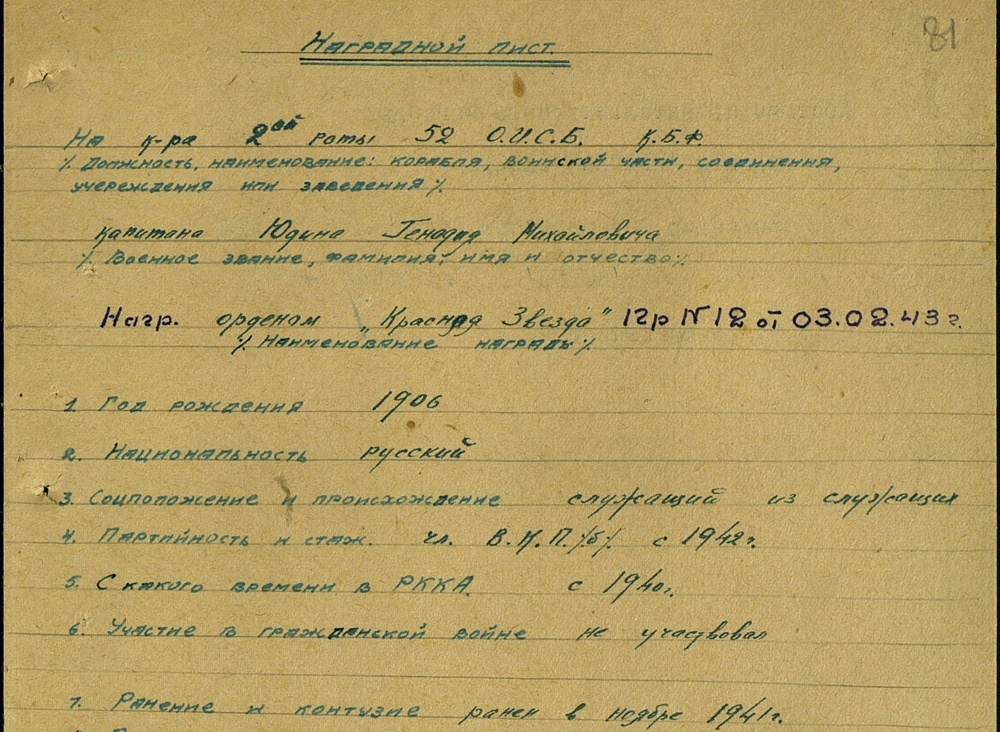 81
Наградной лист.
На к-ра 2ой роты 52 О.И.С.Б. К.Б.Ф.
% Должность, наименование: корабля, воинской части, соединения,
учереждения или заведения %.
капитана Юдина Генадия Михайловича
% Военное звание, фамилия, имя и отчество %
Нагр. орденом „Красная Звезда" Пр N12 от 03.02.43 г.
% Наименование награды %.
1. Год рождения 1906
2. Национальность русский
3. Соцположение и происхождение служащий из служащих
4. Партийность и стаж. чл. В.К.П.%б%. с 1942г.
5. С какого времени в РККА. с 1940г.
6. Участие в гражданской войне не участвовал
7. Ранение и контузие ранен в ноябре 1941г.